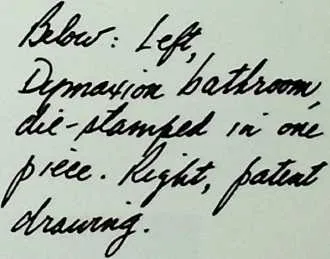 Below: Left,
Dymaxion bathroom,
die-stamped in one
piece. Right, patent
drawing.